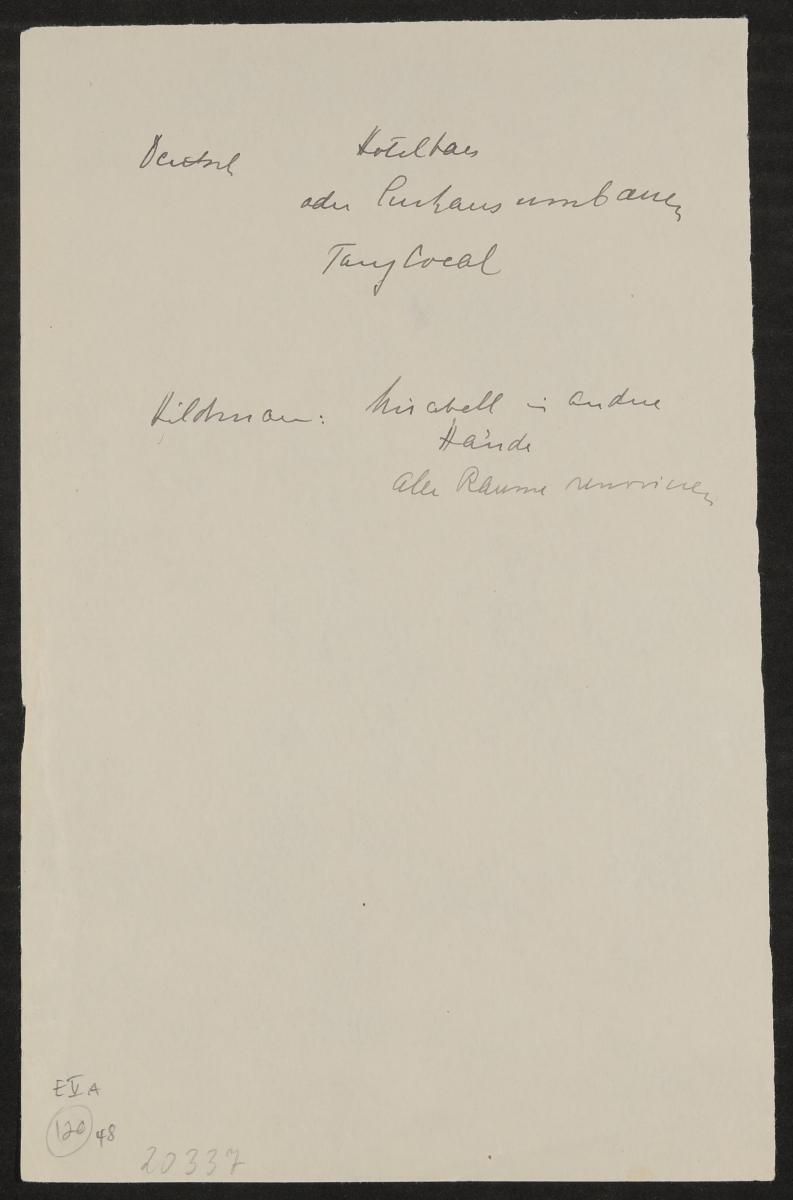 Deutsch Hotelbau
oder Curhaus umbauen
Tanzlocal
Hildmann: Mirabell in andere
Hände
alle Räume renovieren
E IV A
120 48
20337